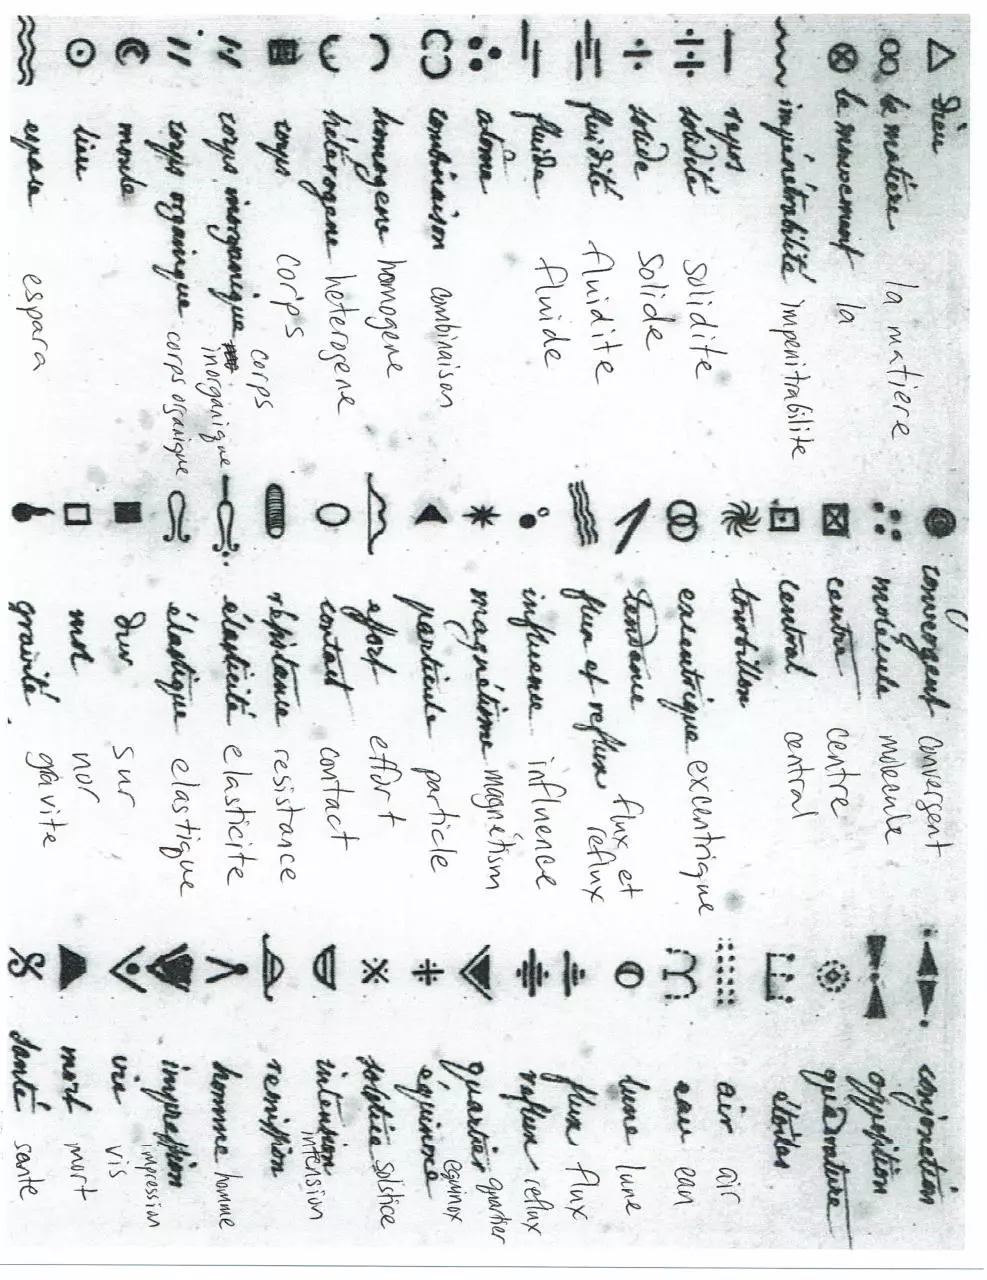 Dieu
la matiere la matiere
le mouvement la
impénétrabilité impenitrabilite
repos
solidité solidite
solide solide
fluidité fluidite
fluide fluide
atome
combinaison combinaison
homogene homogene
hétérogene heterogene
corps corps
corps inorganique corps inorganique
corps organique corps organique
monde
lieu
espace espara
convergent convergent
molécule molecule
centre centre
central central
tourbillon
excentrique excentrique
tendance
flux et reflux flux et reflux
influence influence
magnétisme magnetism
particule particle
effort effort
contact contact
résistance resistance
élasticité elasticite
élastique elastique
dur sur
mol nor
gravité gravite
conjonction
opposition
quadrature
étoiles
air air
eau ean
lune lune
flux flux
reflux reflux
quartier quartier
équinoxe equinox
solstice solstice
intension intension
remission
homme homme
impression impression
vie vis
mort mort
santé sante